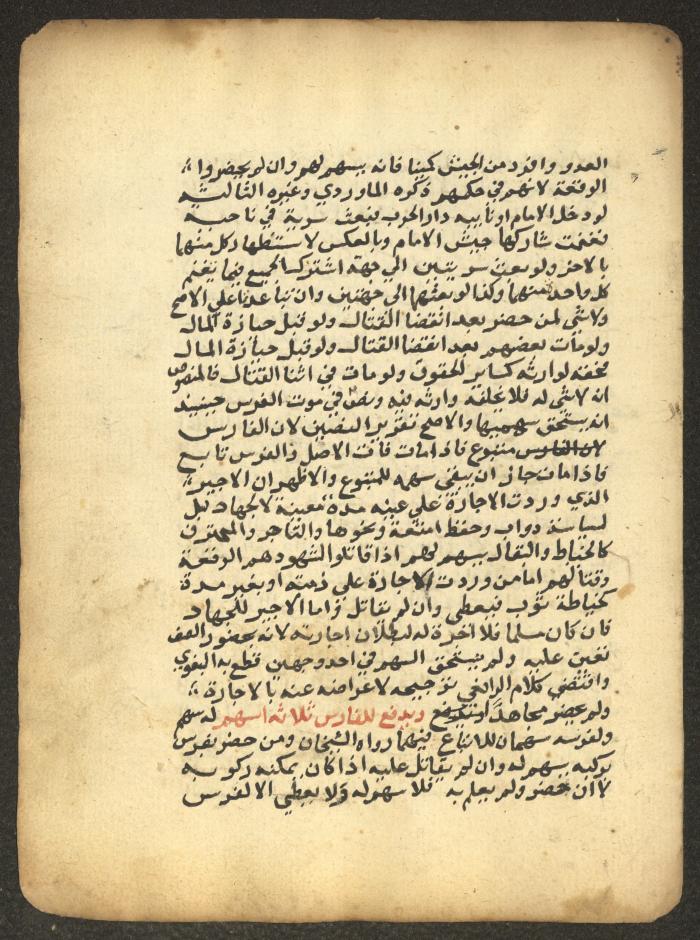 العدو وافرد من الجيش كمينا فانه يسهم لهم وان لم يحضروا
الوقعة لانهم في حكمهم ذكره الماوردي وغيره الثالثة
لو دخل الامام او نايبه دار الحرب فبعث سرية في ناحية
فغنمت شاركها جيش الامام وبالعكس لاستظهار كل منهما
بالاخر ولو بعث سريتين الي جهة اشترك الجميع فيما تغنم
كل واحدة منهما وكذا لو بعثهما الي جهتين وان تباعدتا علي الاصح
ولا شي لمن حضر بعد انقضا القتال ولو قبل حيازة المال
ولو مات بعضهم بعد انقضا القتال ولو قبل حيازة المال
فحقه لوارثه كساير الحقوق ولو مات في اثنا القتال فالمنصوص
انه لا شي له فلا يخلفه وارثه فيه ونص في موت الفرس حينيذ
انه يستحق سهميها والاصح تقرير النصين لان الفارس
لان الفارس متبوع فاذا مات فات الاصل والفرس تابع
فاذا مات جاز ان يبقي سهمه للمتبوع والاظهر ان الاجير
الذي وردت الاجارة علي عينه مدة معينة لا لجهاد بل
لسياسة دواب وحفظ امتعة ونحوها والتاجر والمحترف
كالخياط والبقال يسهم لهم اذا قاتلوا لشهودهم الوقعة
وقتالهم اما من وردت الاجارة علي ذمته او بغير مدة
كخياطة ثوب فيعطي وان لم يقاتل واما الاجير للجهاد
فان كان مسلما فلا اجرة له لبطلان اجارته لانه بحضور الصف
تعين عليه ولم يستحق السهم في احد وجهين قطع به البغوي
واقتضي كلام الرافعي ترجيحه لاعراضه عنه بالاجارة
ولم يحضر مجاهدا ويدفع للفارس ثلاثة اسهم له سهم
ولفرسه سهمان للاتباع فيهما رواه الشيخان ومن حضر بفرس
يركبه يسهم له وان لم يقاتل عليه اذا كان يمكنه ركوبه
لا ان حضر ولم يعلم به فلا سهم له ولا يعطي الا لفرس